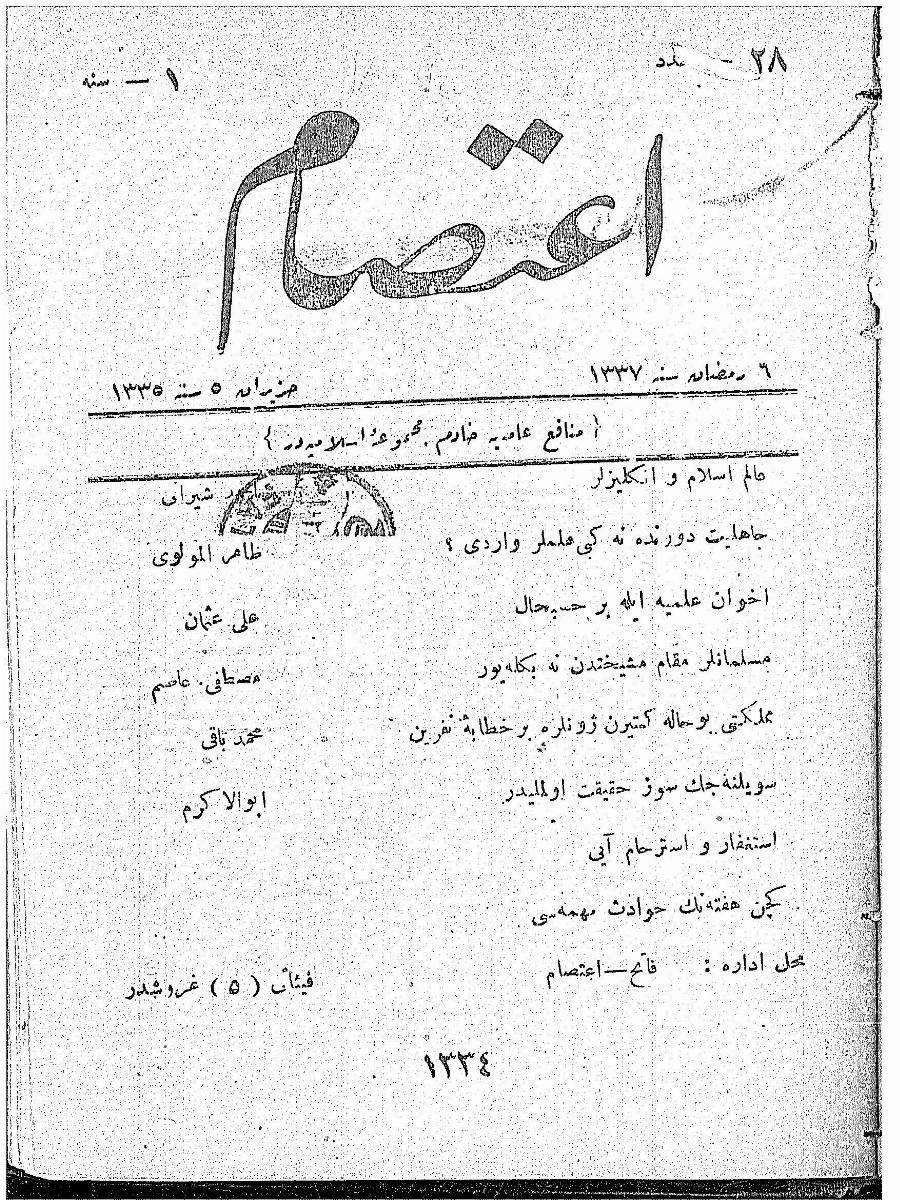 ٢٨ — عدد
١ — سنه
اعتصام
٦ رمضان سنه ١٣٣٧
حزيران ٥ سنه ١٣٣٥
{ منافع عامه‌يه خادم مجموعهٔ اسلاميه‌در }
عالم اسلام و انكليزلر
احمد شيرانی
جاهليت دورنده نه كبی علملر واردی ؟
طاهر المولوی
اخوان علميه ايله بر حسبحال
علی عثمان
مسلمانلر مقام مشيختدن نه بكله‌يور
مصطفی عاصم
مملكتی بو حاله كتيرن ژونلره بر خطابهٔ نفرين
محمد باقی
سويلنه‌جك سوز حقيقت اولمليدر
ابوالاكرم
استغفار و استرحام آيی
كچن هفته‌نك حوادث مهمه‌سی
محل اداره : فاتح — اعتصام
فيئاتی ( ٥ ) غروشدر
١٣٣٤